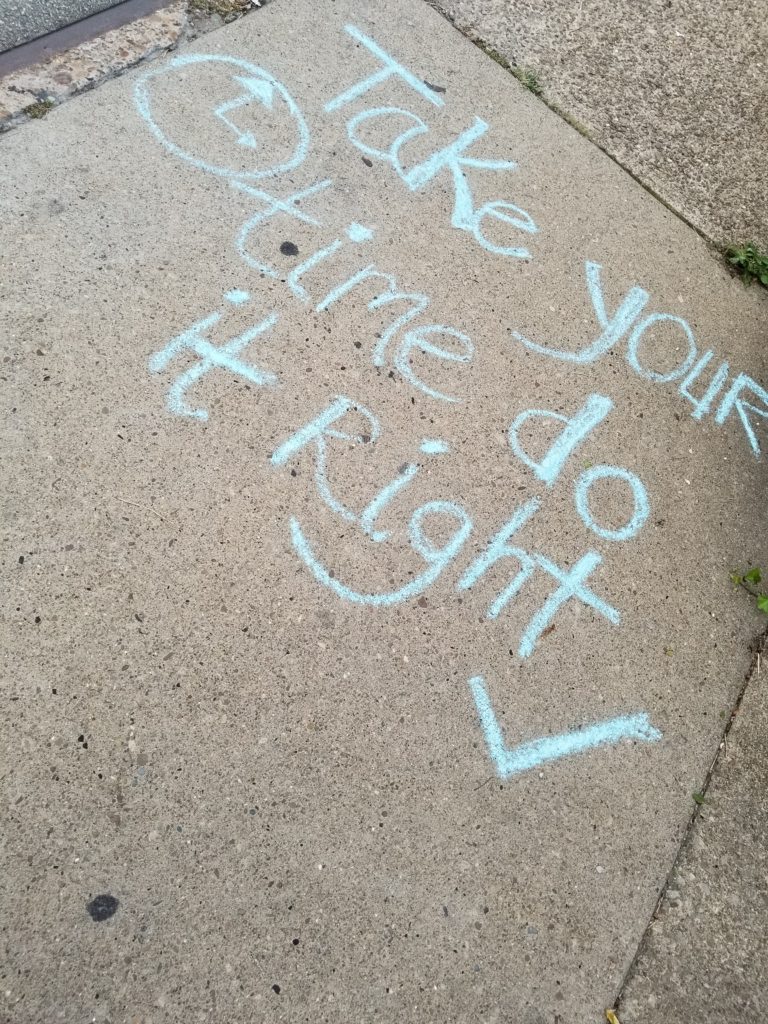 Take your
time do
it Right